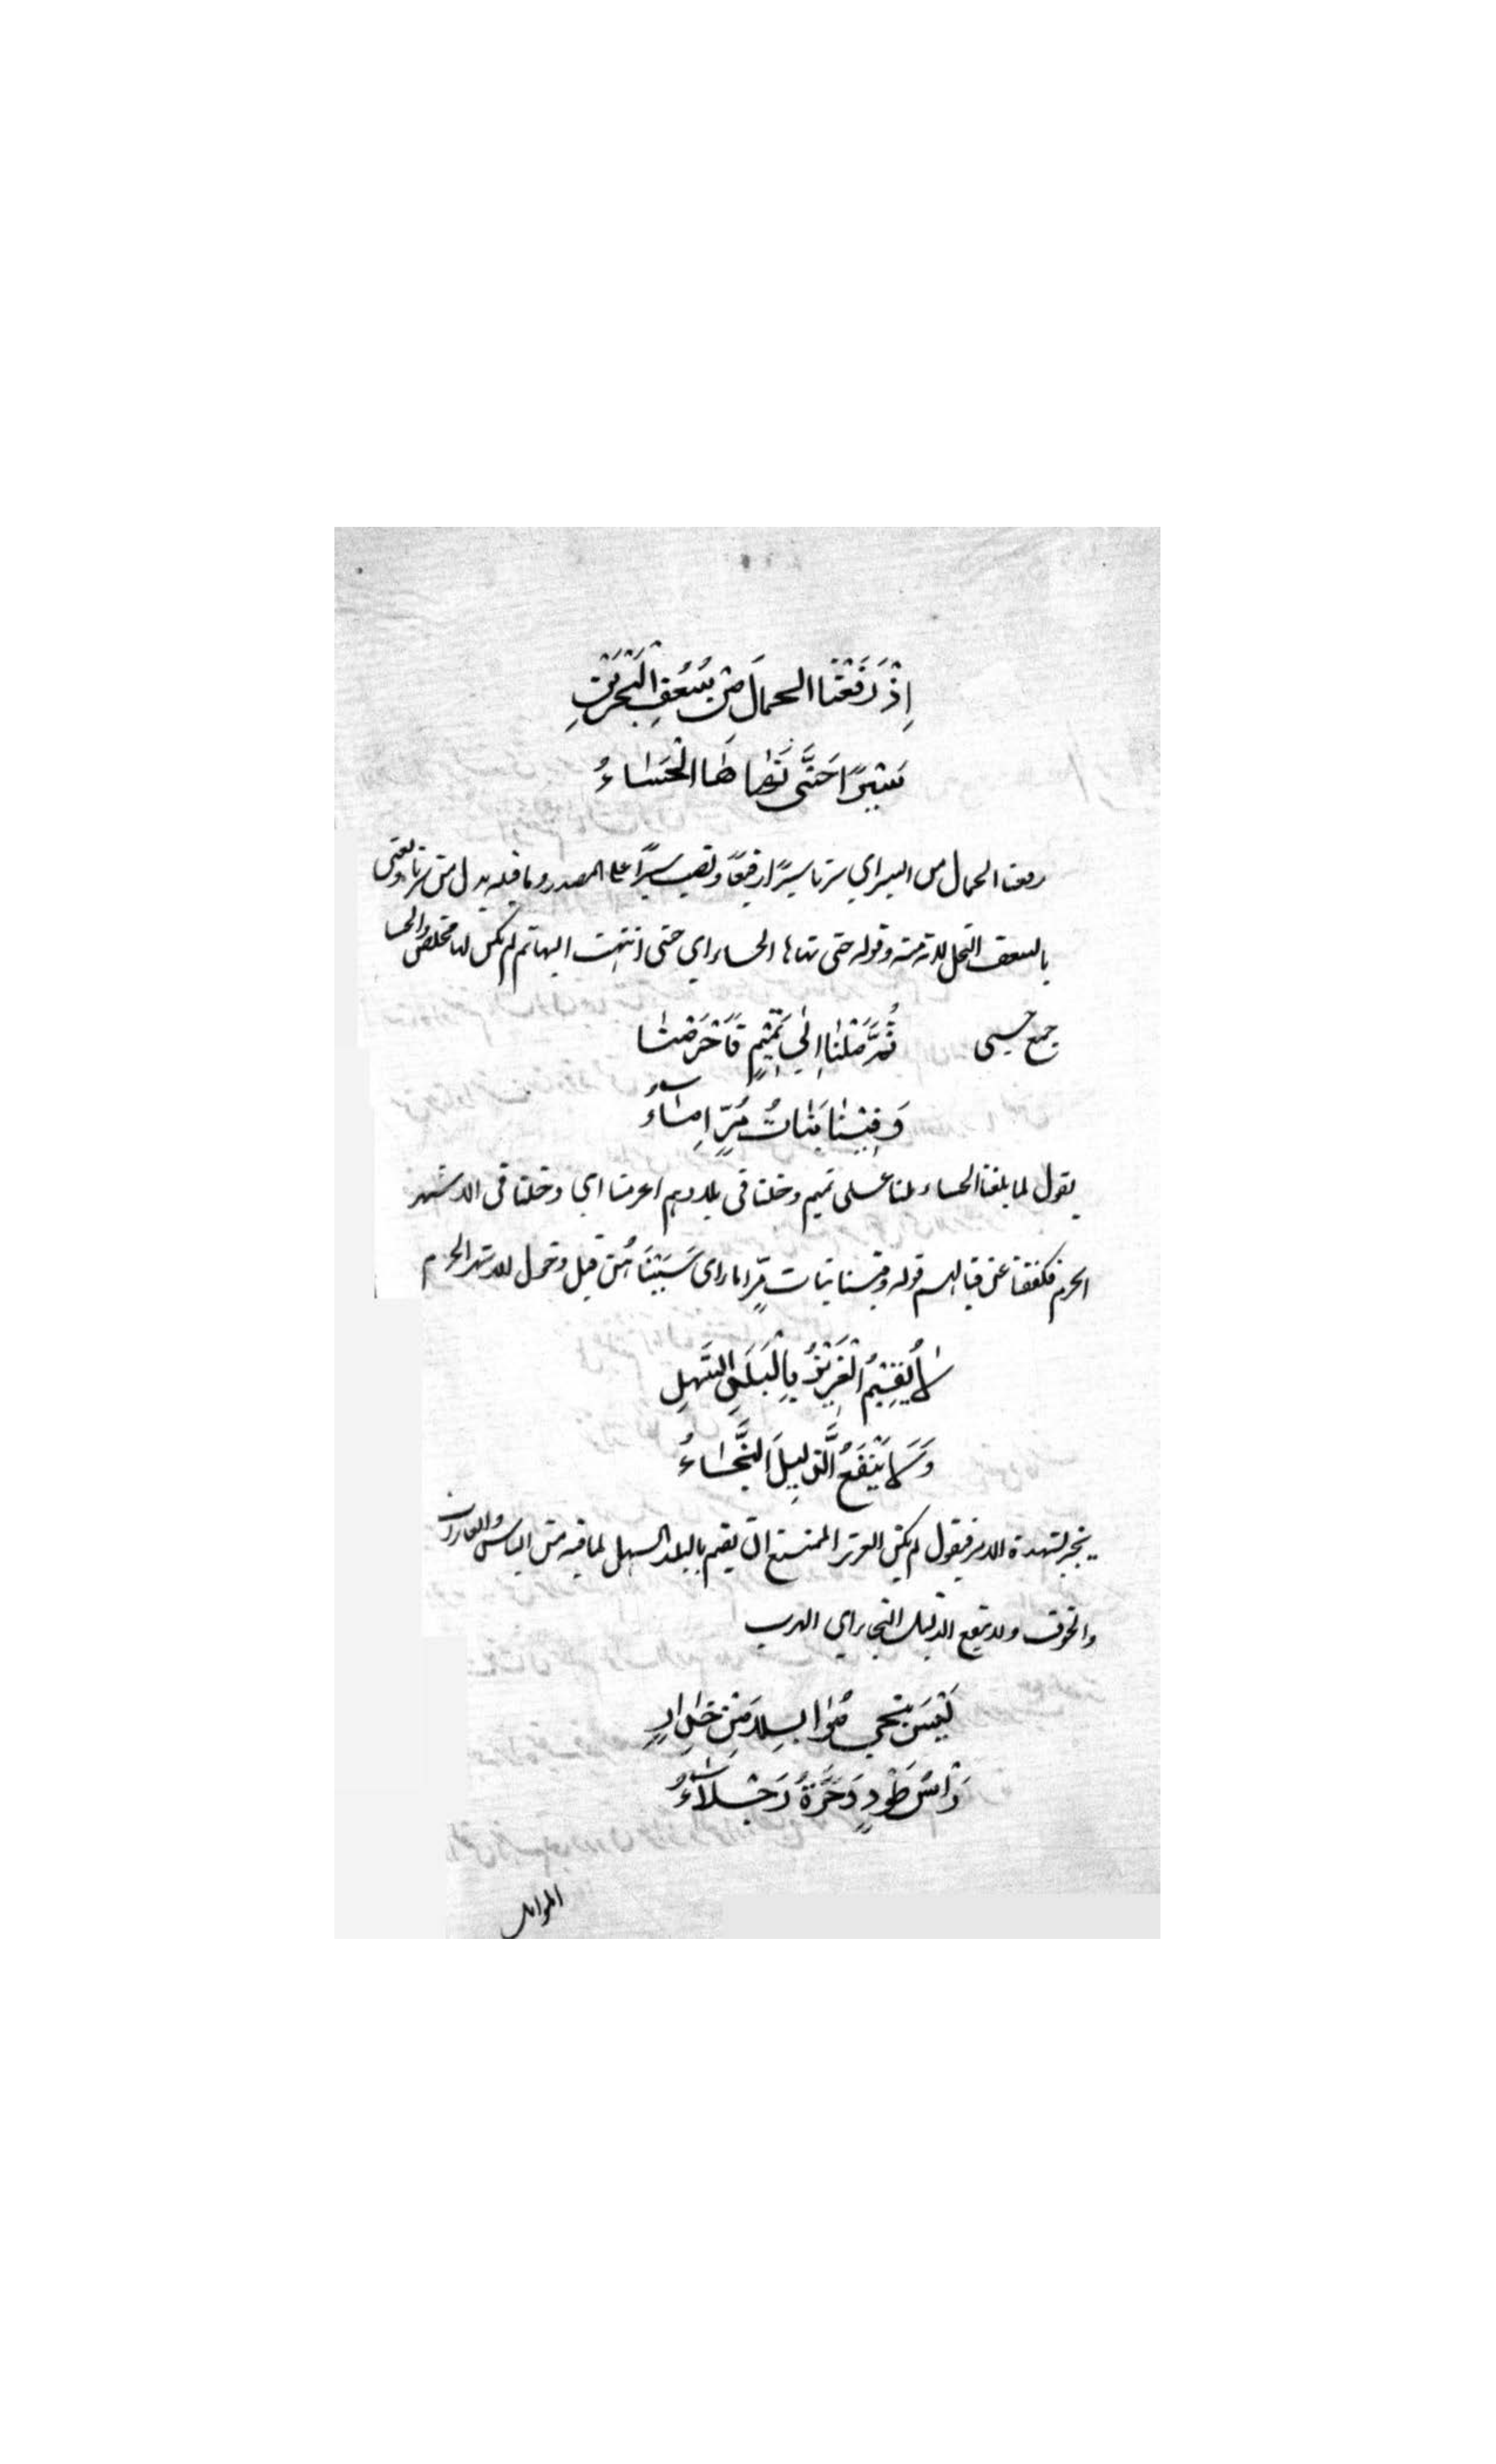 اِذْ رَفَعْنَا الجمالَ مِنْ سَعَفِ الْبَحْرَيْنِ
سَيْرًا حَتَّى نَهَاهَا الْحِسَاءُ
رفعنا الجمال من السير اي سرنا سيرًا رفيعًا ونصب سيرًا على المصدر وما قبله بدل من سرنا ويعني
بالسعف النخل لانه منه وقوله حتى نهاها الحساء اي حتى انتهت اليها ثم لم يكن لها مخلص والحسا
جمع حسى ثُمَّ مِلْنَا اِلَى تَمِيْمٍ فَاَحْرَمْنَا
وَفِيْنَا بَنَاتُ مُرٍّ اِمَاءُ
يقول لما بلغنا الحساء ملنا على تميم وخلنا فى بلادهم احرمنا اي دخلنا فى الاشهر
الحرم فكففنا عن قتالهم قوله وفينا بنات مرّ اماء اى سَبَيْنَاهُنّ قبل دخول الاشهر الحرم
لَا يُقِيْمُ الْعَزِيْزُ بِالْبَلَدِ السَّهلِ
وَلَا يَنْفَعُ الذَّلِيلَ النَّجَاءُ
يخبر لشدة الامر فيقول لم يكن العزيز الممتنع ان يقيم بالبلد السهل لما فيه من الباس والغارات
والخوف ولا ينفع الذليل النجاء اي الهرب
لَيْسَ ينجي مُوَايِلًا مِنْ حِذَارٍ
رَاْسُ طَوْدٍ وَحَرَّةٌ رَجْلَاءُ
الموايل